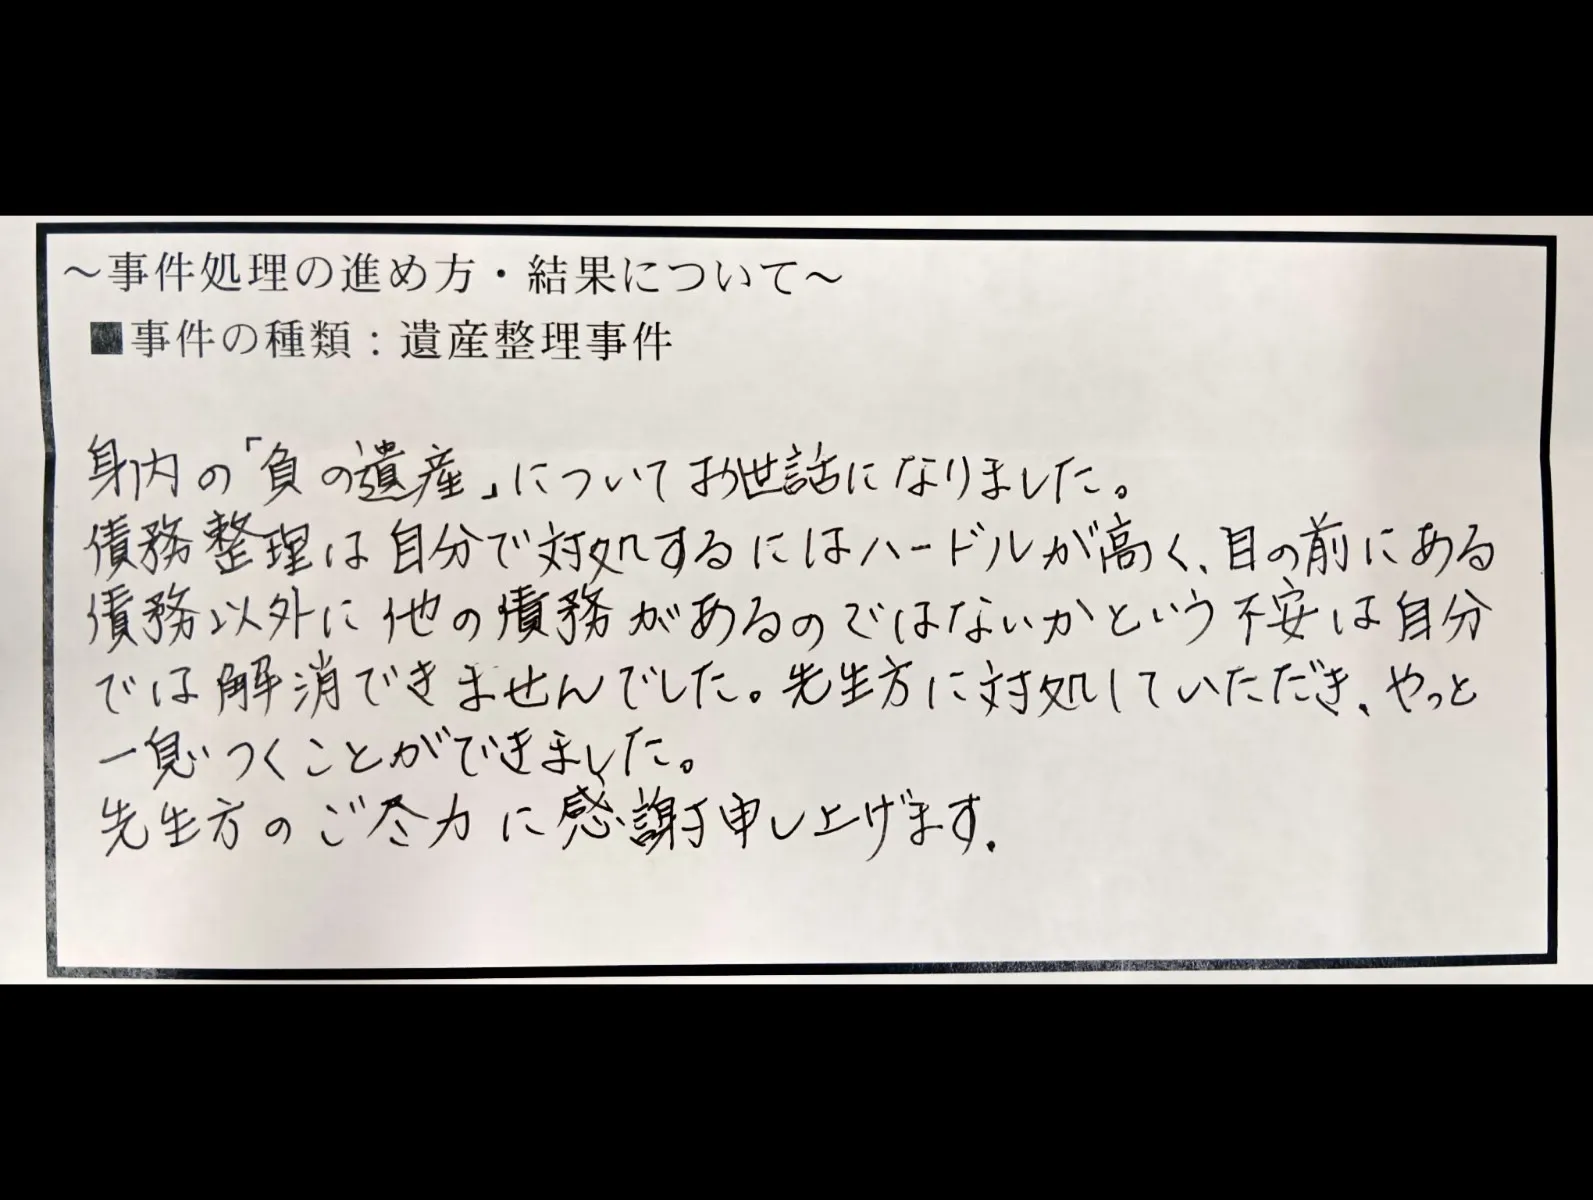 ～事件処理の進め方・結果について～
■事件の種類：遺産整理事件
身内の「負の遺産」についてお世話になりました。
債務整理は自分で対処するにはハードルが高く、目の前にある
債務以外に他の債務があるのではないかという不安は自分
では解消できませんでした。先生方に対処していただき、やっと
一息つくことができました。
先生方のご尽力に感謝申し上げます.